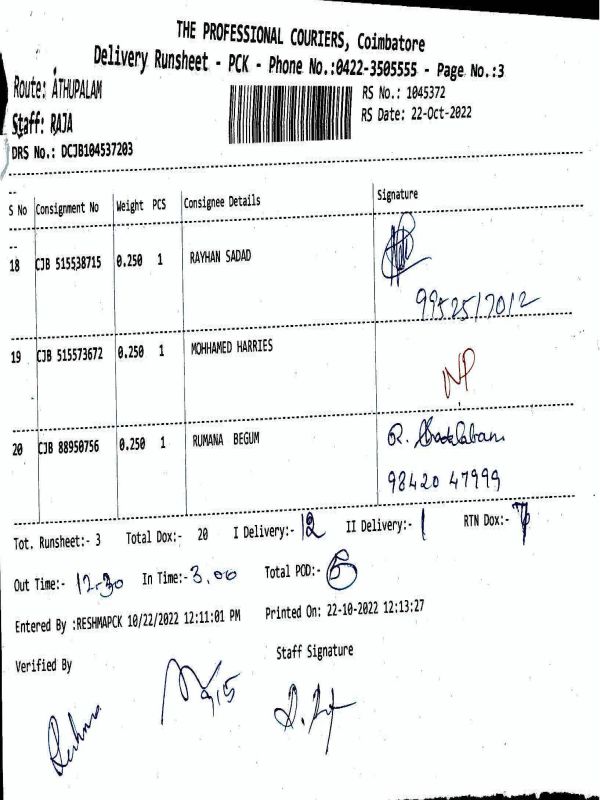 THE PROFESSIONAL COURIERS, Coimbatore
Delivery Runsheet - PCK - Phone No.:0422-3505555 - Page No.:3
Route: ATHUPALAM
RS No.: 1045372
Staff: RAJA
RS Date: 22-Oct-2022
DRS No.: DCJB104537203
S No Consignment No Weight PCS Consignee Details Signature
18 CJB 515538715 0.250 1 RAYHAN SADAD
9952517012
19 CJB 515573672 0.250 1 MOHHAMED HARRIES
NP
20 CJB 88950756 0.250 1 RUMANA BEGUM R.
98420 47999
Tot. Runsheet:- 3 Total Dox:- 20 I Delivery:- 12 II Delivery:- 1 RTN Dox:- 7
Out Time:- 12-30 In Time:- 3.00 Total POD:- 5
Entered By :RESHMAPCK 10/22/2022 12:11:01 PM Printed On: 22-10-2022 12:13:27
Verified By Staff Signature